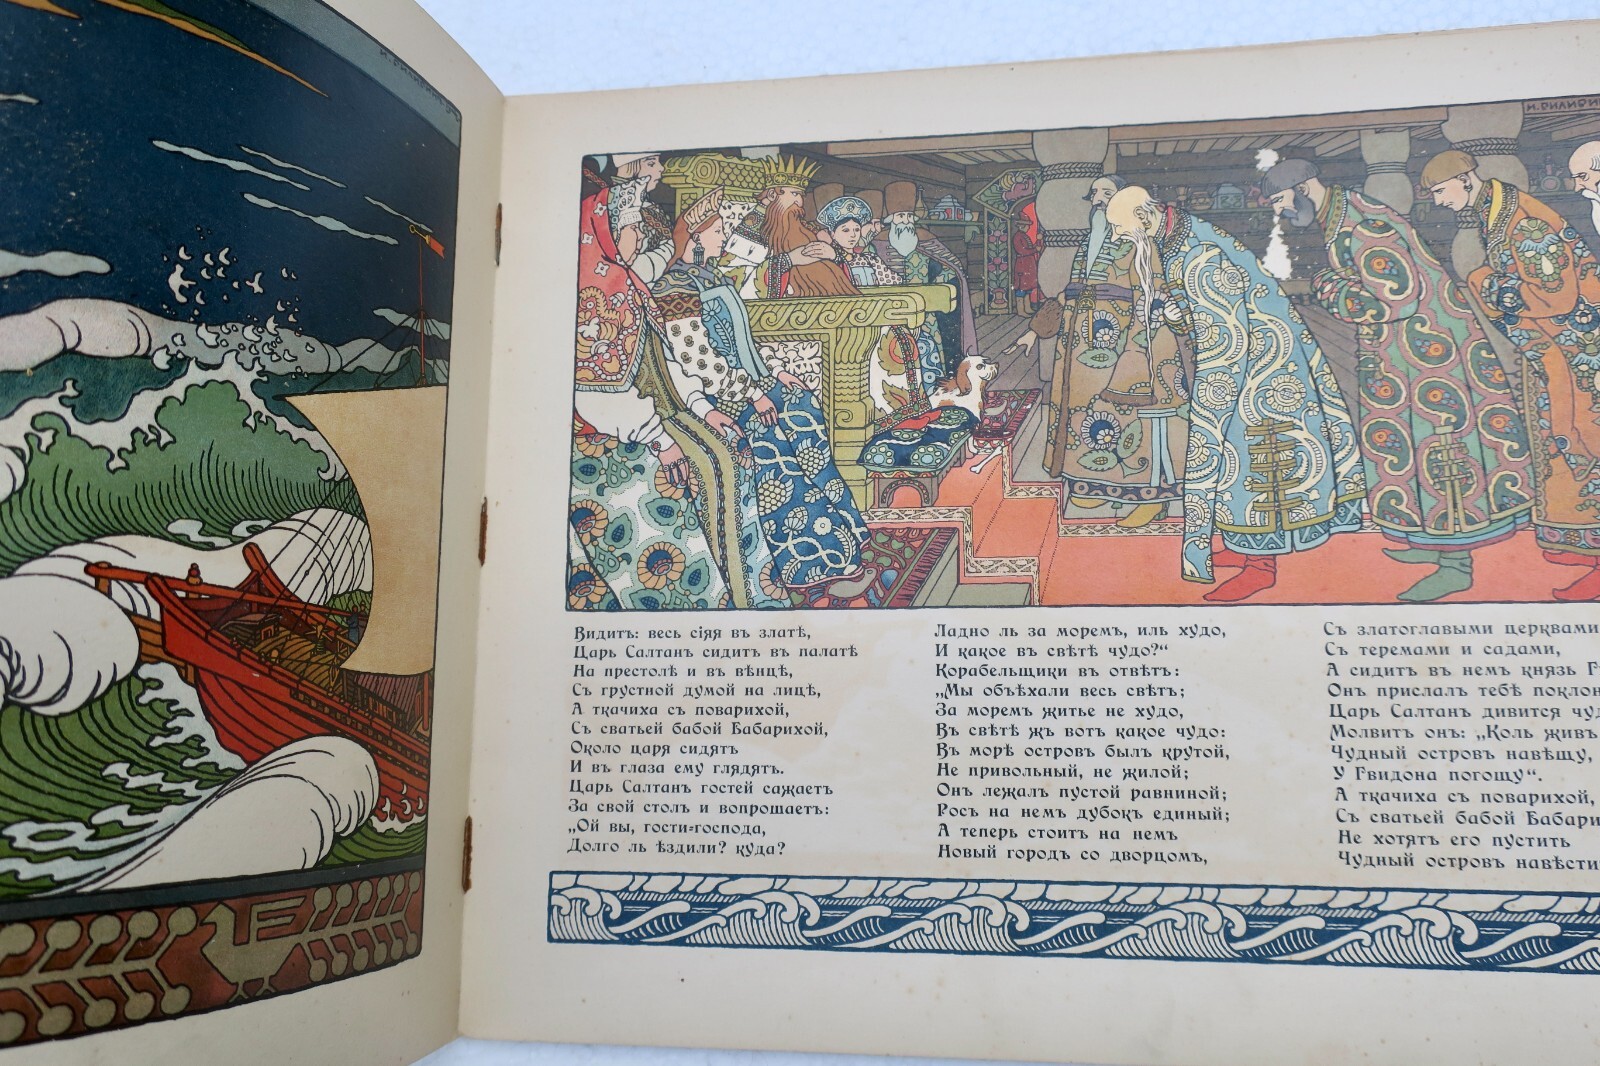 И. БИЛИБИНЪ
Видитъ: весь сіяя въ златѣ,
Царь Салтанъ сидитъ въ палатѣ
На престолѣ и въ вѣнцѣ,
Съ грустной думой на лицѣ,
А ткачиха съ поварихой,
Съ сватьей бабой Бабарихой,
Около царя сидятъ
И въ глаза ему глядятъ.
Царь Салтанъ гостей сажаетъ
За свой столъ и вопрошаетъ:
„Ой вы, гости-господа,
Долго ль ѣздили? куда?
Ладно ль за моремъ, иль худо,
И какое въ свѣтѣ чудо?“
Корабельщики въ отвѣтъ:
„Мы объѣхали весь свѣтъ;
За моремъ житье не худо,
Въ свѣтѣ жъ вотъ какое чудо:
Въ морѣ островъ былъ крутой,
Не привольный, не жилой;
Онъ лежалъ пустой равниной;
Росъ на немъ дубокъ единый;
А теперь стоитъ на немъ
Новый городъ со дворцомъ,
Съ златоглавыми церквами
Съ теремами и садами,
А сидитъ въ немъ князь
Онъ прислалъ тебѣ
Царь Салтанъ дивится
Молвитъ онъ: „Коль
Чудный островъ навѣщу,
У Гвидона погощу“.
А ткачиха съ поварихой,
Съ сватьей бабой
Не хотятъ его пустить
Чудный островъ